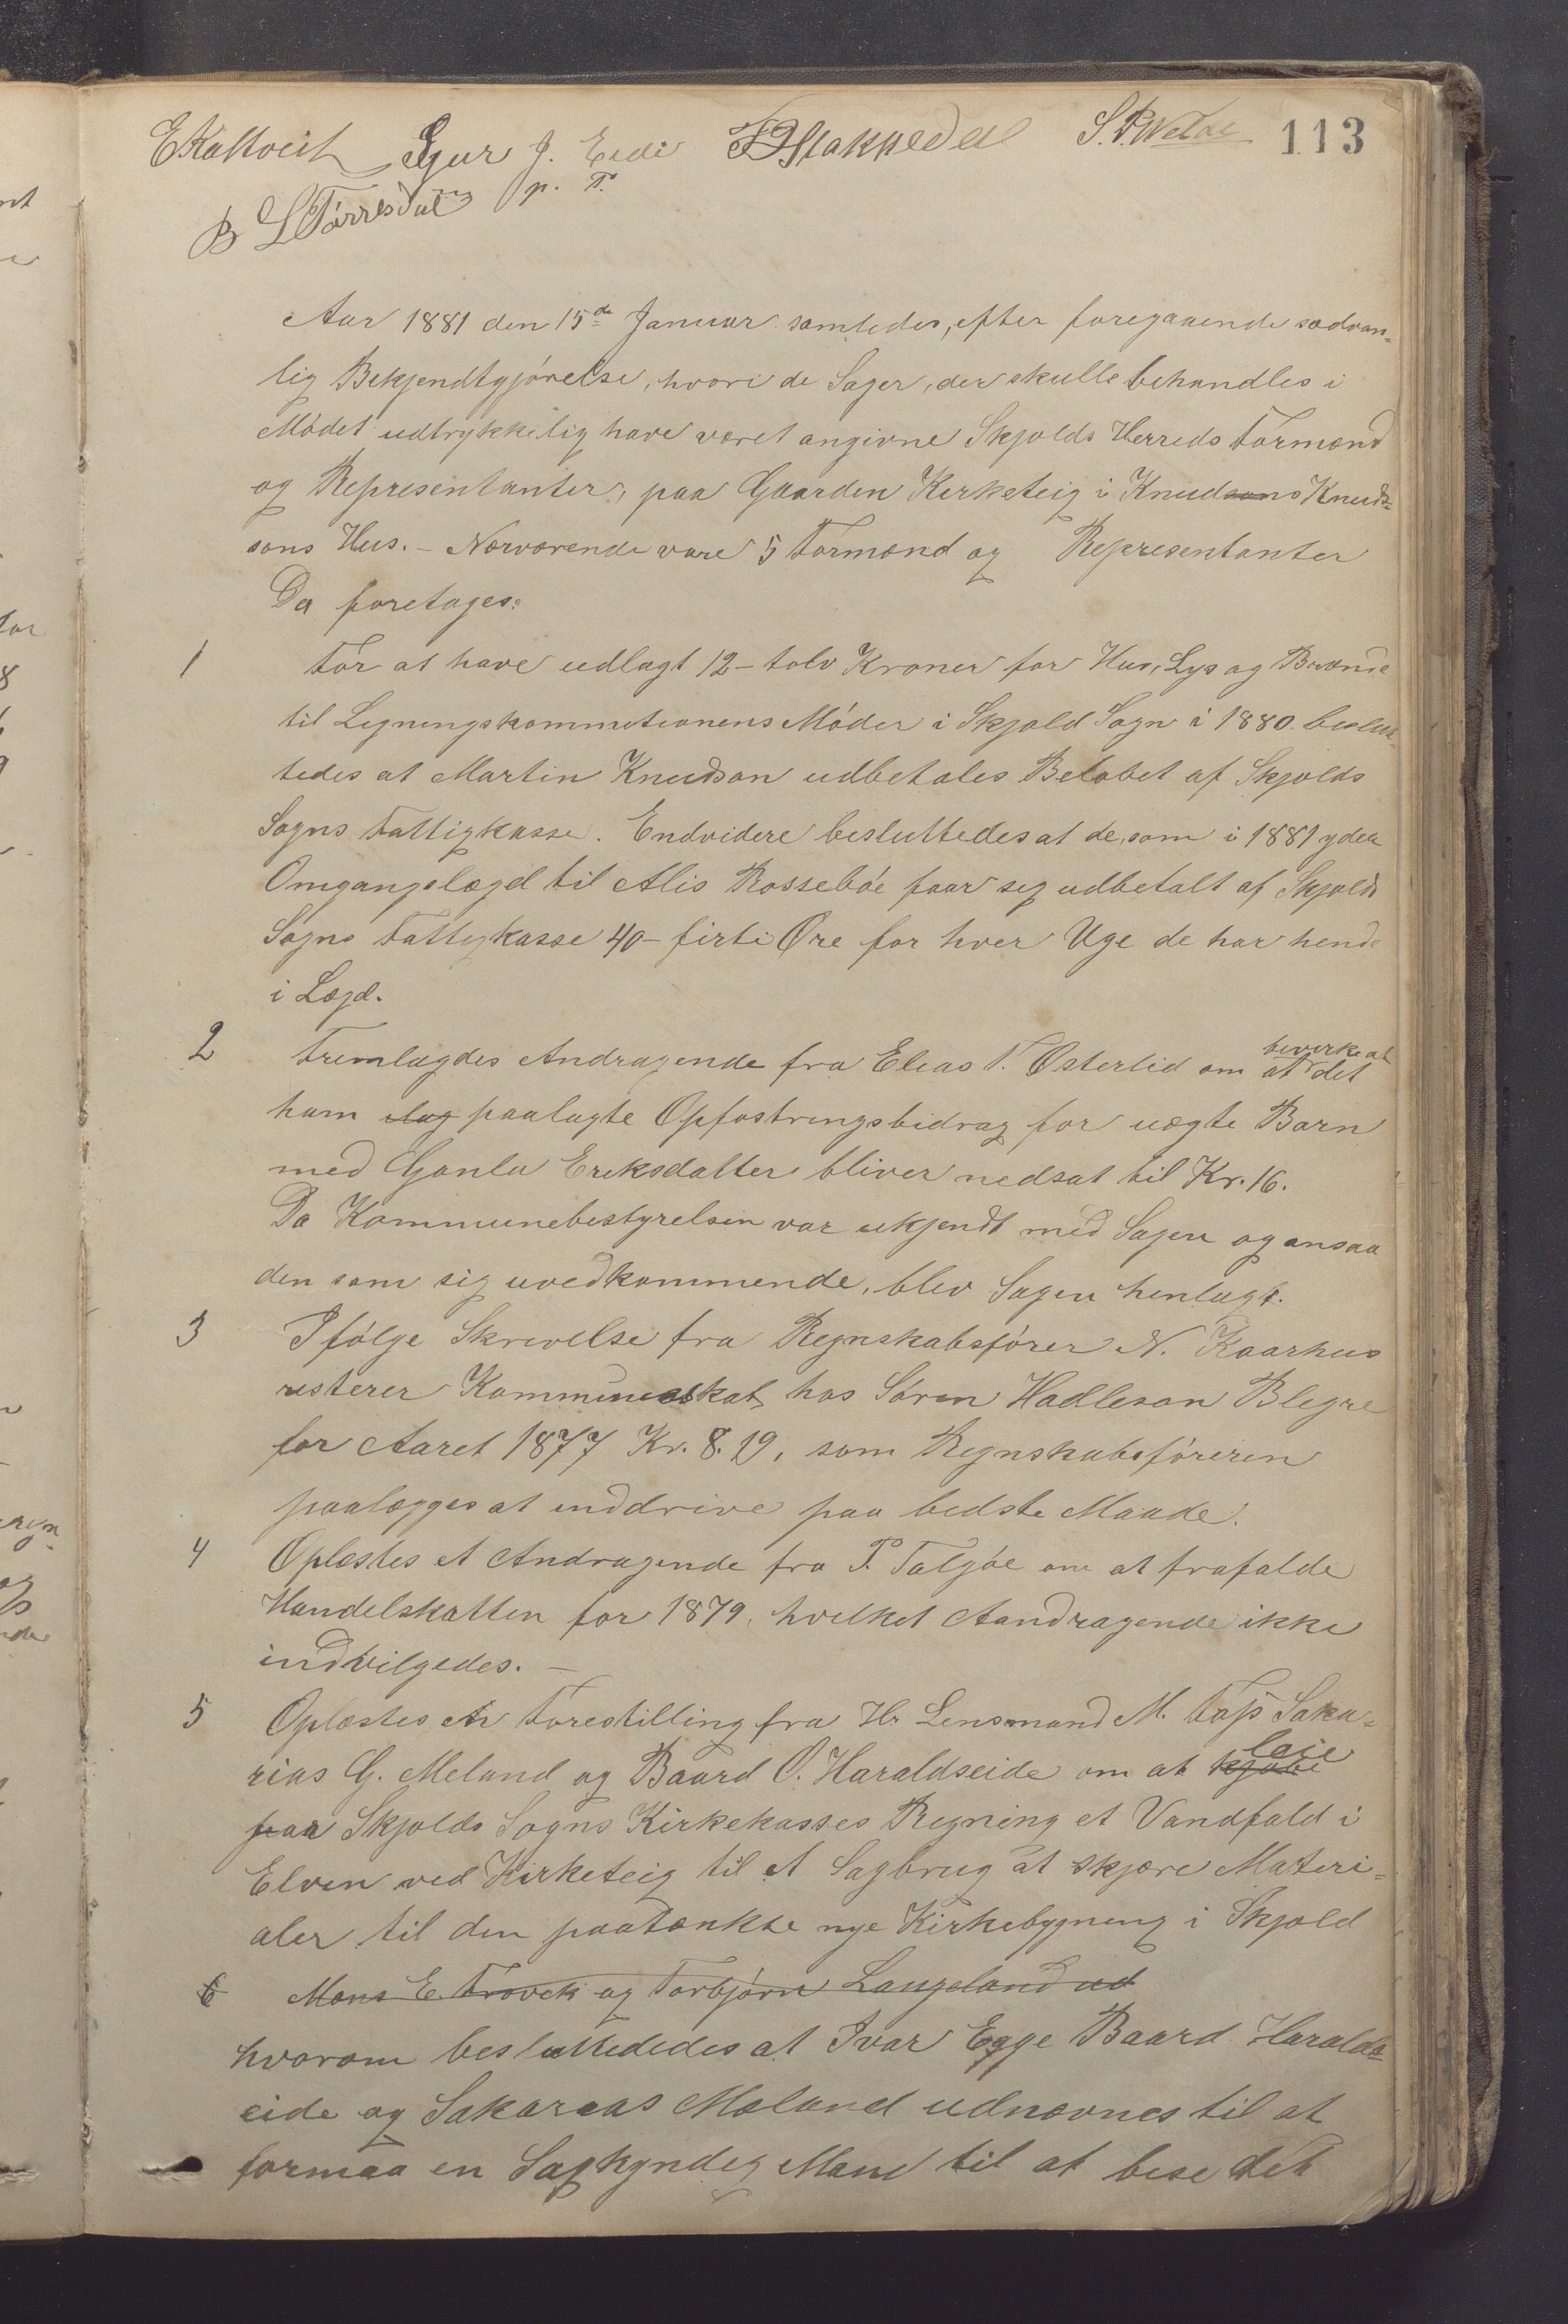 113
E Kaltveit Sjur J. Eide T D Stakkedal S. P. Velde
B L Tørresdal p. T.
Aar 1881 den 15de Januar samledes, efter foregaaende sædvan-
lig Bekjendtgjørelse, hvori de Sager, der skulle behandles i
Mødet udtrykkelig have været angivne Skjolds Herreds Formænd
og Representanter, paa Gaarden Kirketeig i Knudsons Knud-
sons Hus. – Nærværende vare 5 Formænd og Representanter
Da foretages:
1 For at have udlagt 12 – tolv Kroner for Hus, Lys og Brænde
til Ligningskommetionens Møder i Skjold Sogn i 1880 beslut-
tedes at Martin Knudson udbetales Beløbet af Skjolds
Sogns Fattigkasse. Endvidere besluttedes at de, som i 1881 yder
Omgangslægd til Alis Rossebøe faar sig udbetalt af Skjolds
Sogns Fattigkasse 40 – firti Øre for hver Uge de har hende
i Lægd.
2 Fremlagdes Andragende fra Elias T. Østerlid om at bevirke at det
ham lag paalagte Opfostringsbidrag for uægte Barn
med Gonla Eriksdatter bliver nedsat til Kr. 16.
Da Kommunebestyrelsen var ukjendt med Sagen og ansaa
den som sig uvedkommende, blev Sagen henlagt.
3 Ifølge Skrivelse fra Regnskabsfører N. Kaarhus
resterer Kommuneskat hos Søren Hadleson Blegre
for Aaret 1877 Kr. 8.19, som Regnskabsføreren
paalægges at inddrive paa bedste Maade.
4 Oplæstes et Andragende fra P. Talgøe om at frafalde
Handelskatten for 1879, hvilket Aandragende ikke
indvilgedes. –
5 Oplæstes en Forestilling fra Hr Lensmand M. Fops Saka-
rias G. Meland og Baard O. Haraldseide om at kjøbe leie
paa Skjolds Sogns Kirkekasses Regning et Vandfald i
Elven ved Kirketeig til et Sagbrug at skjære Materi-
aler til den paatænkte nye Kirkebygning i Skjold
6 Mons E. Frøvek og Torbjørn Langeland ud
hvorom besluttededes at Ivar Egge Baard Haralds-
eide og Sakareas Mæland udnævnes til at
formaa en Sagkyndig Mand til at bese det